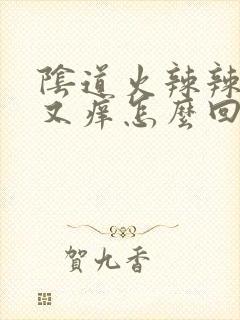 陰道火辣辣
又癢怎麼回
賀九香